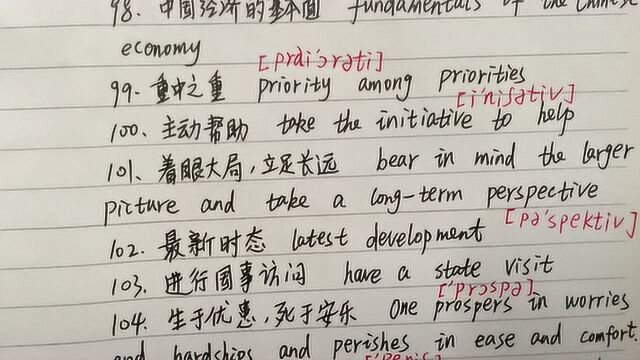 98. 中国经济的基本面 fundamentals of the Chinese
economy
[prai'ɔrəti]
99. 重中之重 priority among priorities
[i'niʃətiv]
100、主动帮助 take the initiative to help
101、着眼大局，立足长远 bear in mind the larger
picture and take a long-term perspective
[pə'spektiv]
102. 最新时态 latest development
103、进行国事访问 have a state visit
['prɔspə]
104. 生于优患，死于安乐 One prospers in worries
and hardships and perishes in ease and comfort.